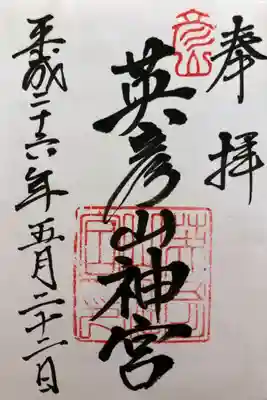 奉拝
彦山
英彦山神宮
平成二十六年五月二十二日